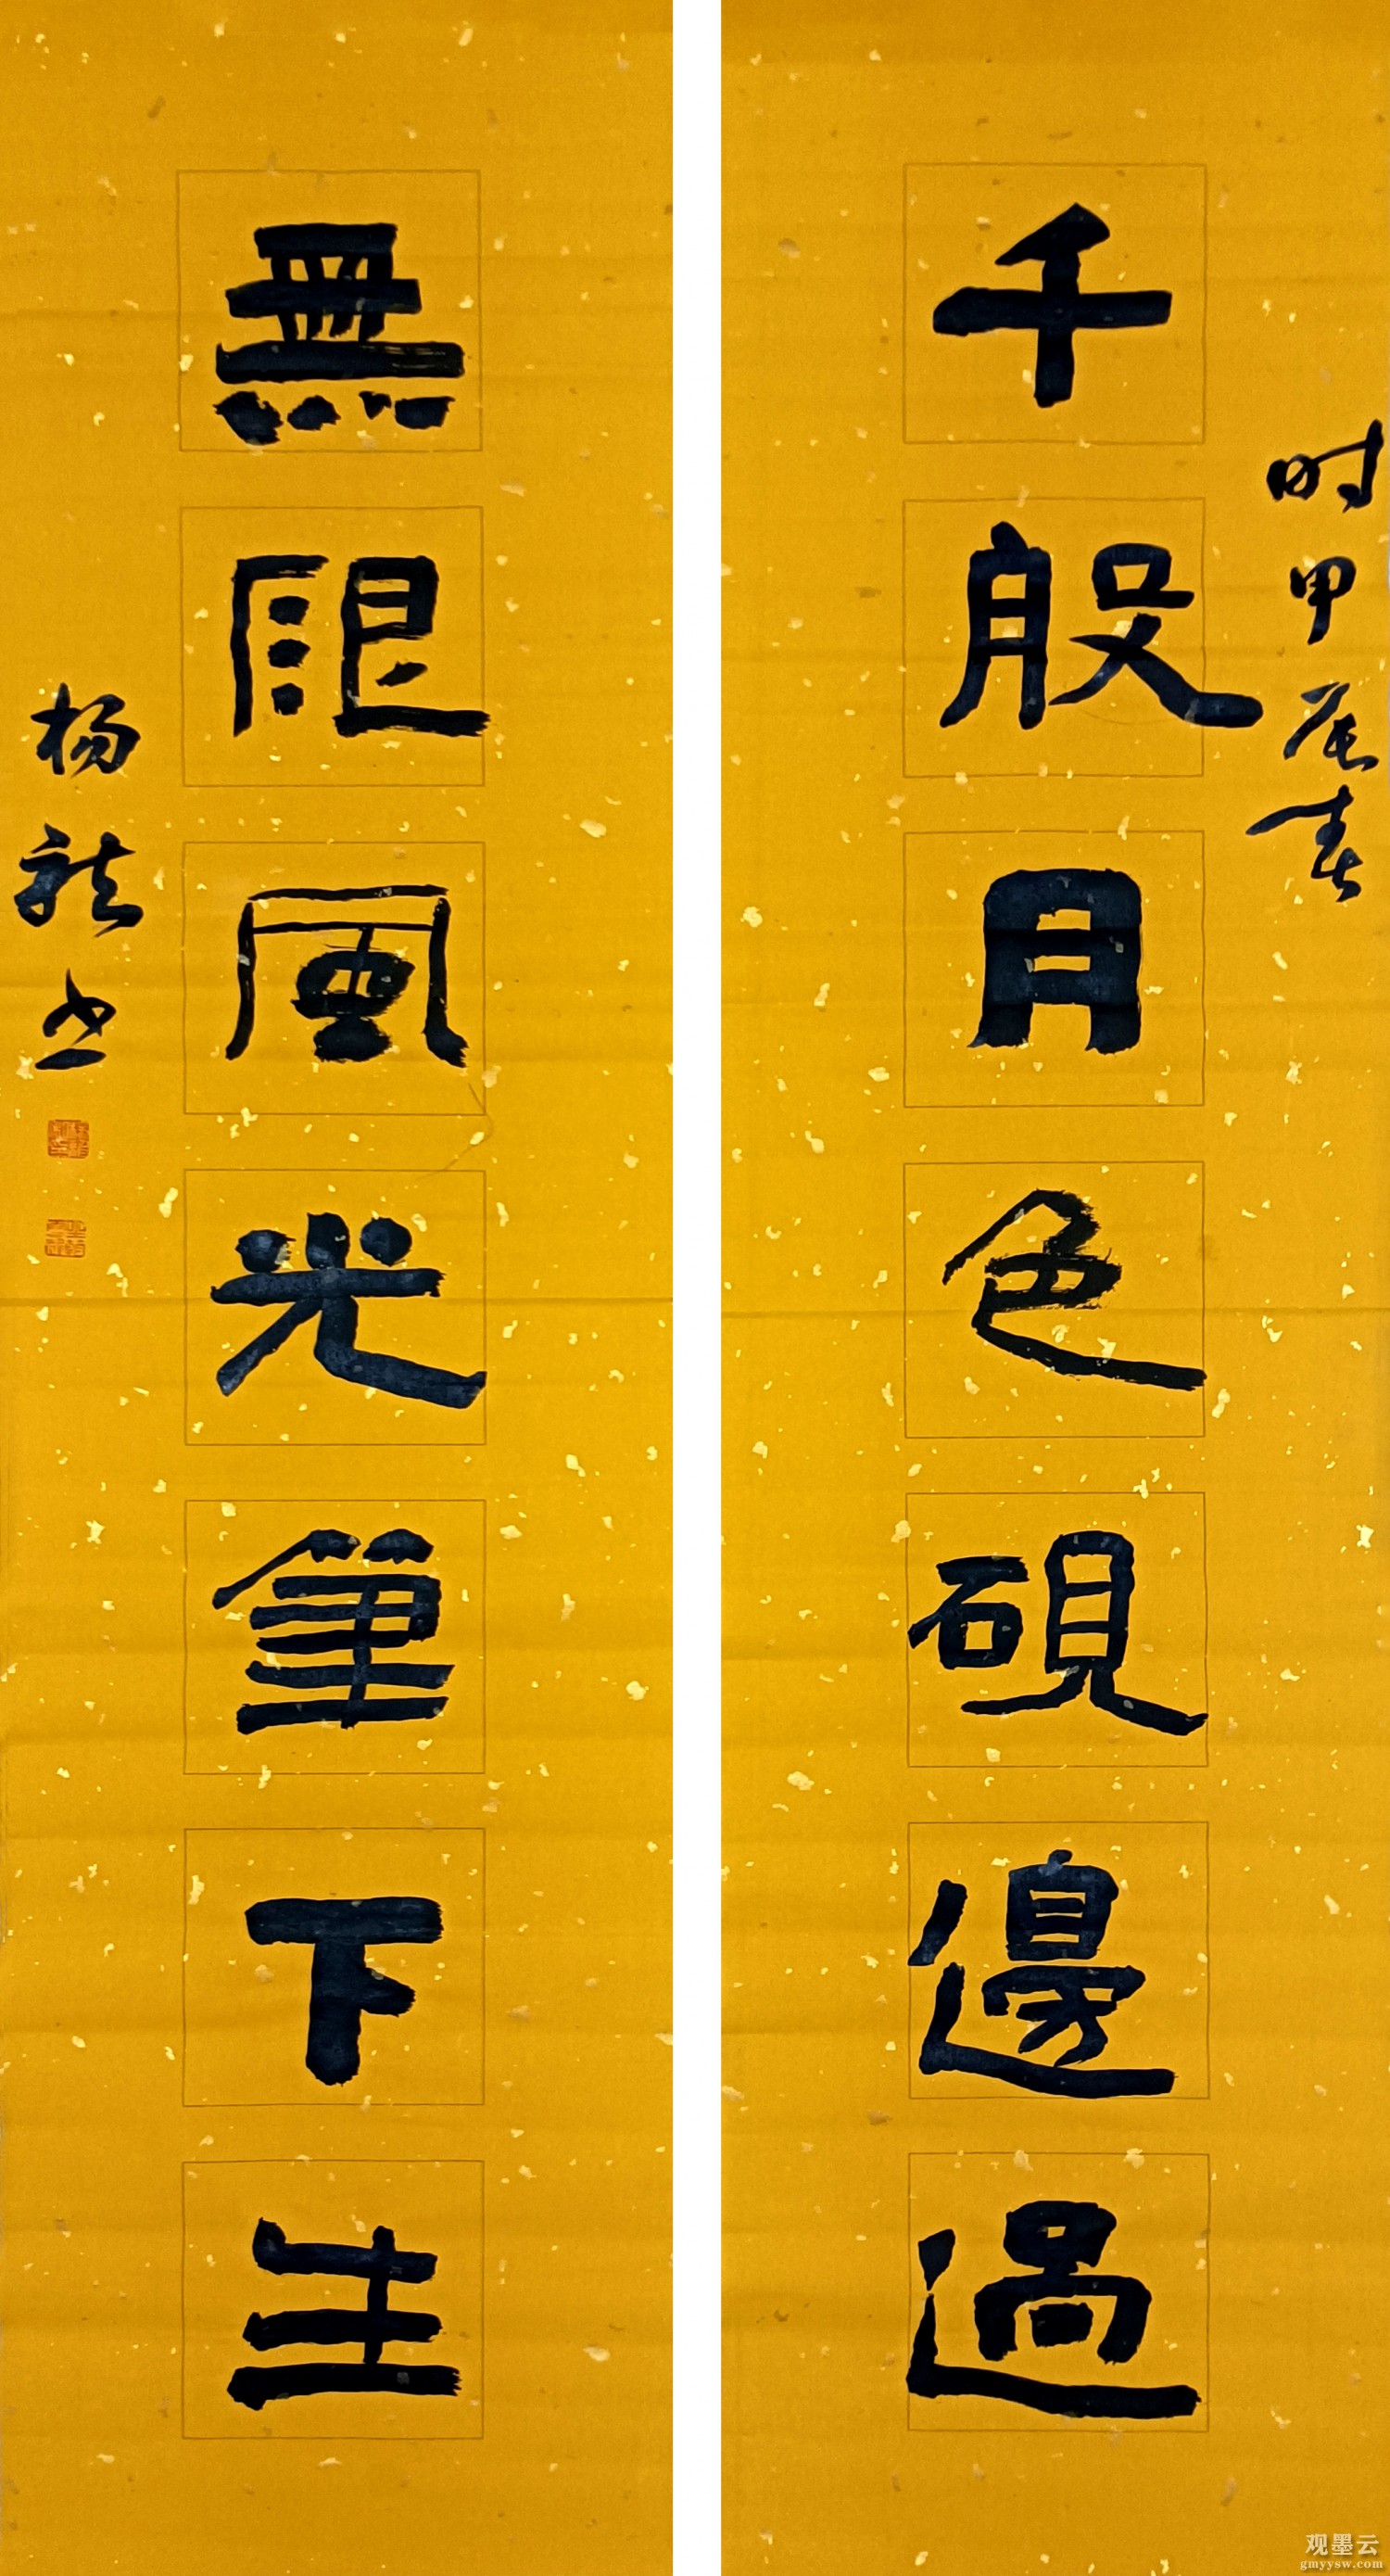 千般月色硯邊過
时甲辰春
無限風光筆下生
杨龙书
观墨云
gmyysw.com